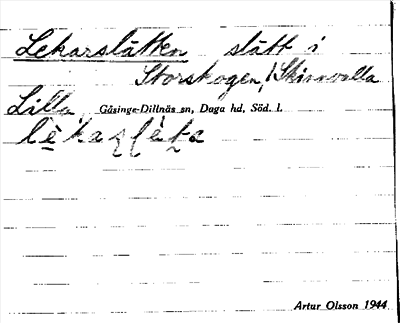 Lekarslätten slätt i
Storskogen, Skinnvalla
Lilla Gåsinge-Dillnäs sn, Daga hd, Söd. l.
Artur Olsson 1944